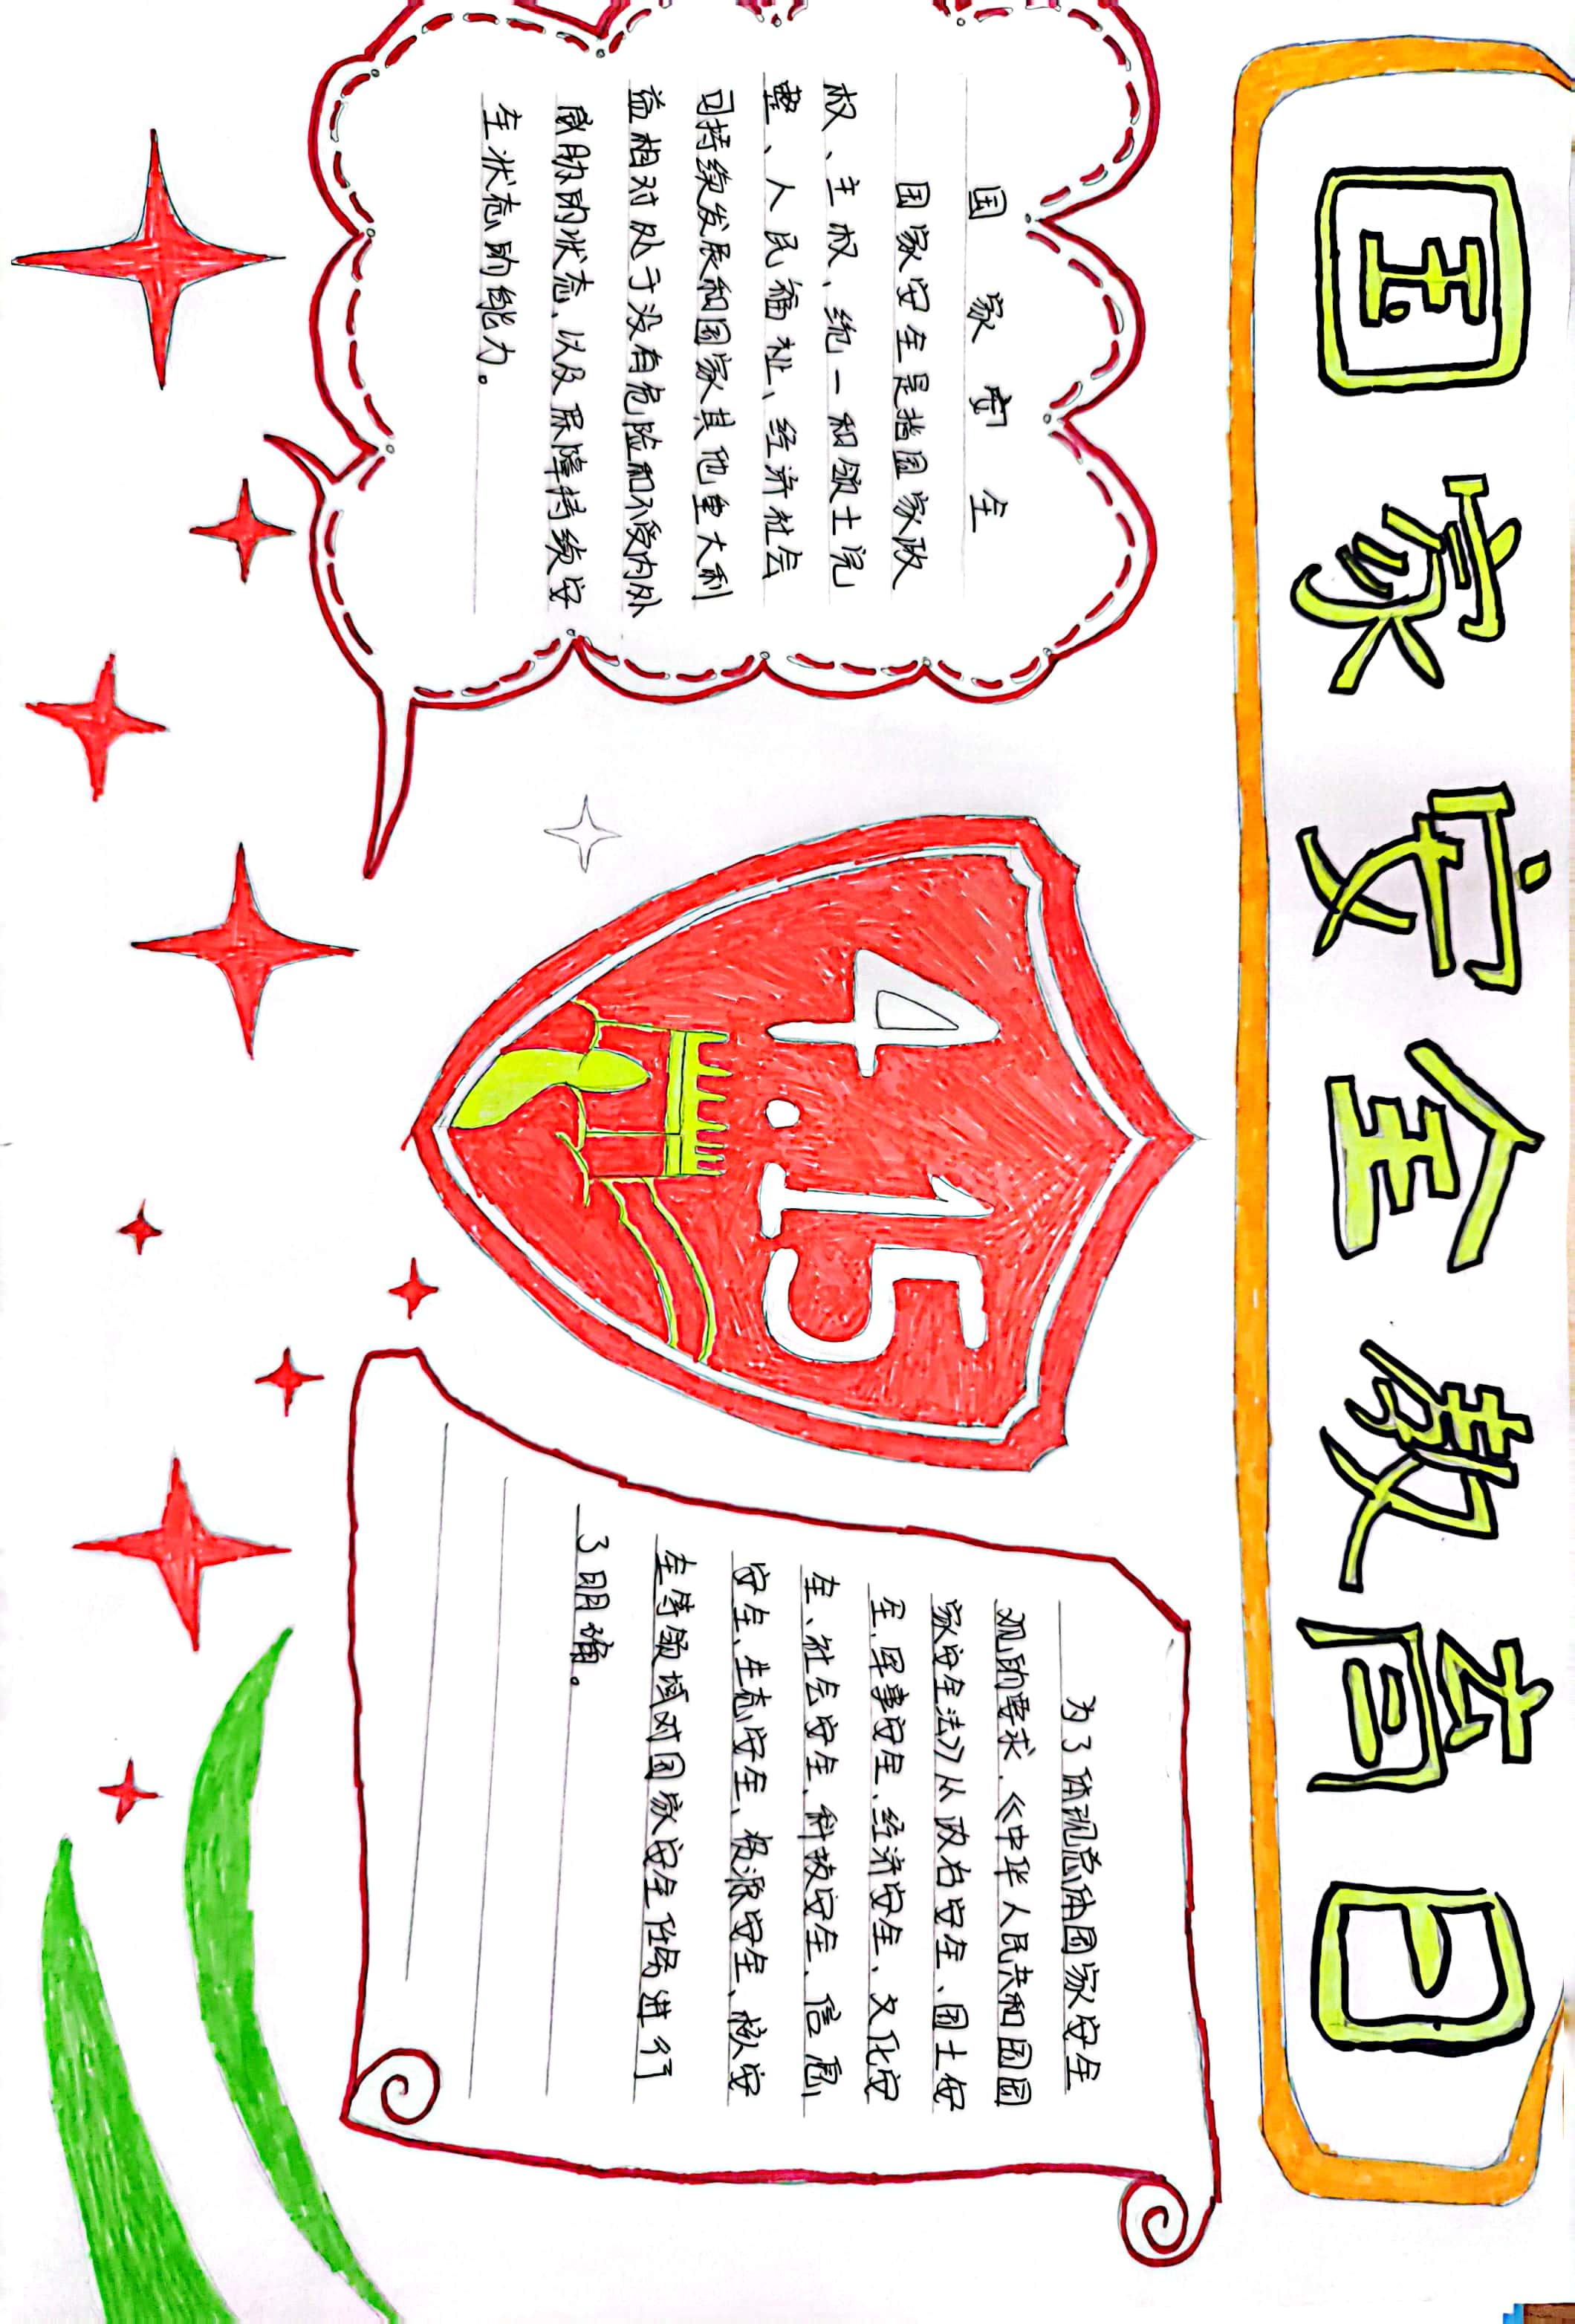 国家安全教育日
国家安全
国家安全是指国家政
权、主权、统一和领土完
整、人民福祉、经济社会
可持续发展和国家其他重大利
益相对处于没有危险和不受内外
威胁的状态，以及保障持续安
全状态的能力。
4.15
为了体现总体国家安全
观的要求，《中华人民共和国国
家安全法》从政治安全、国土安
全、军事安全、经济安全、文化安
全、社会安全、科技安全、信息
安全、生态安全、资源安全、核安
全等领域对国家安全任务进行
了明确。